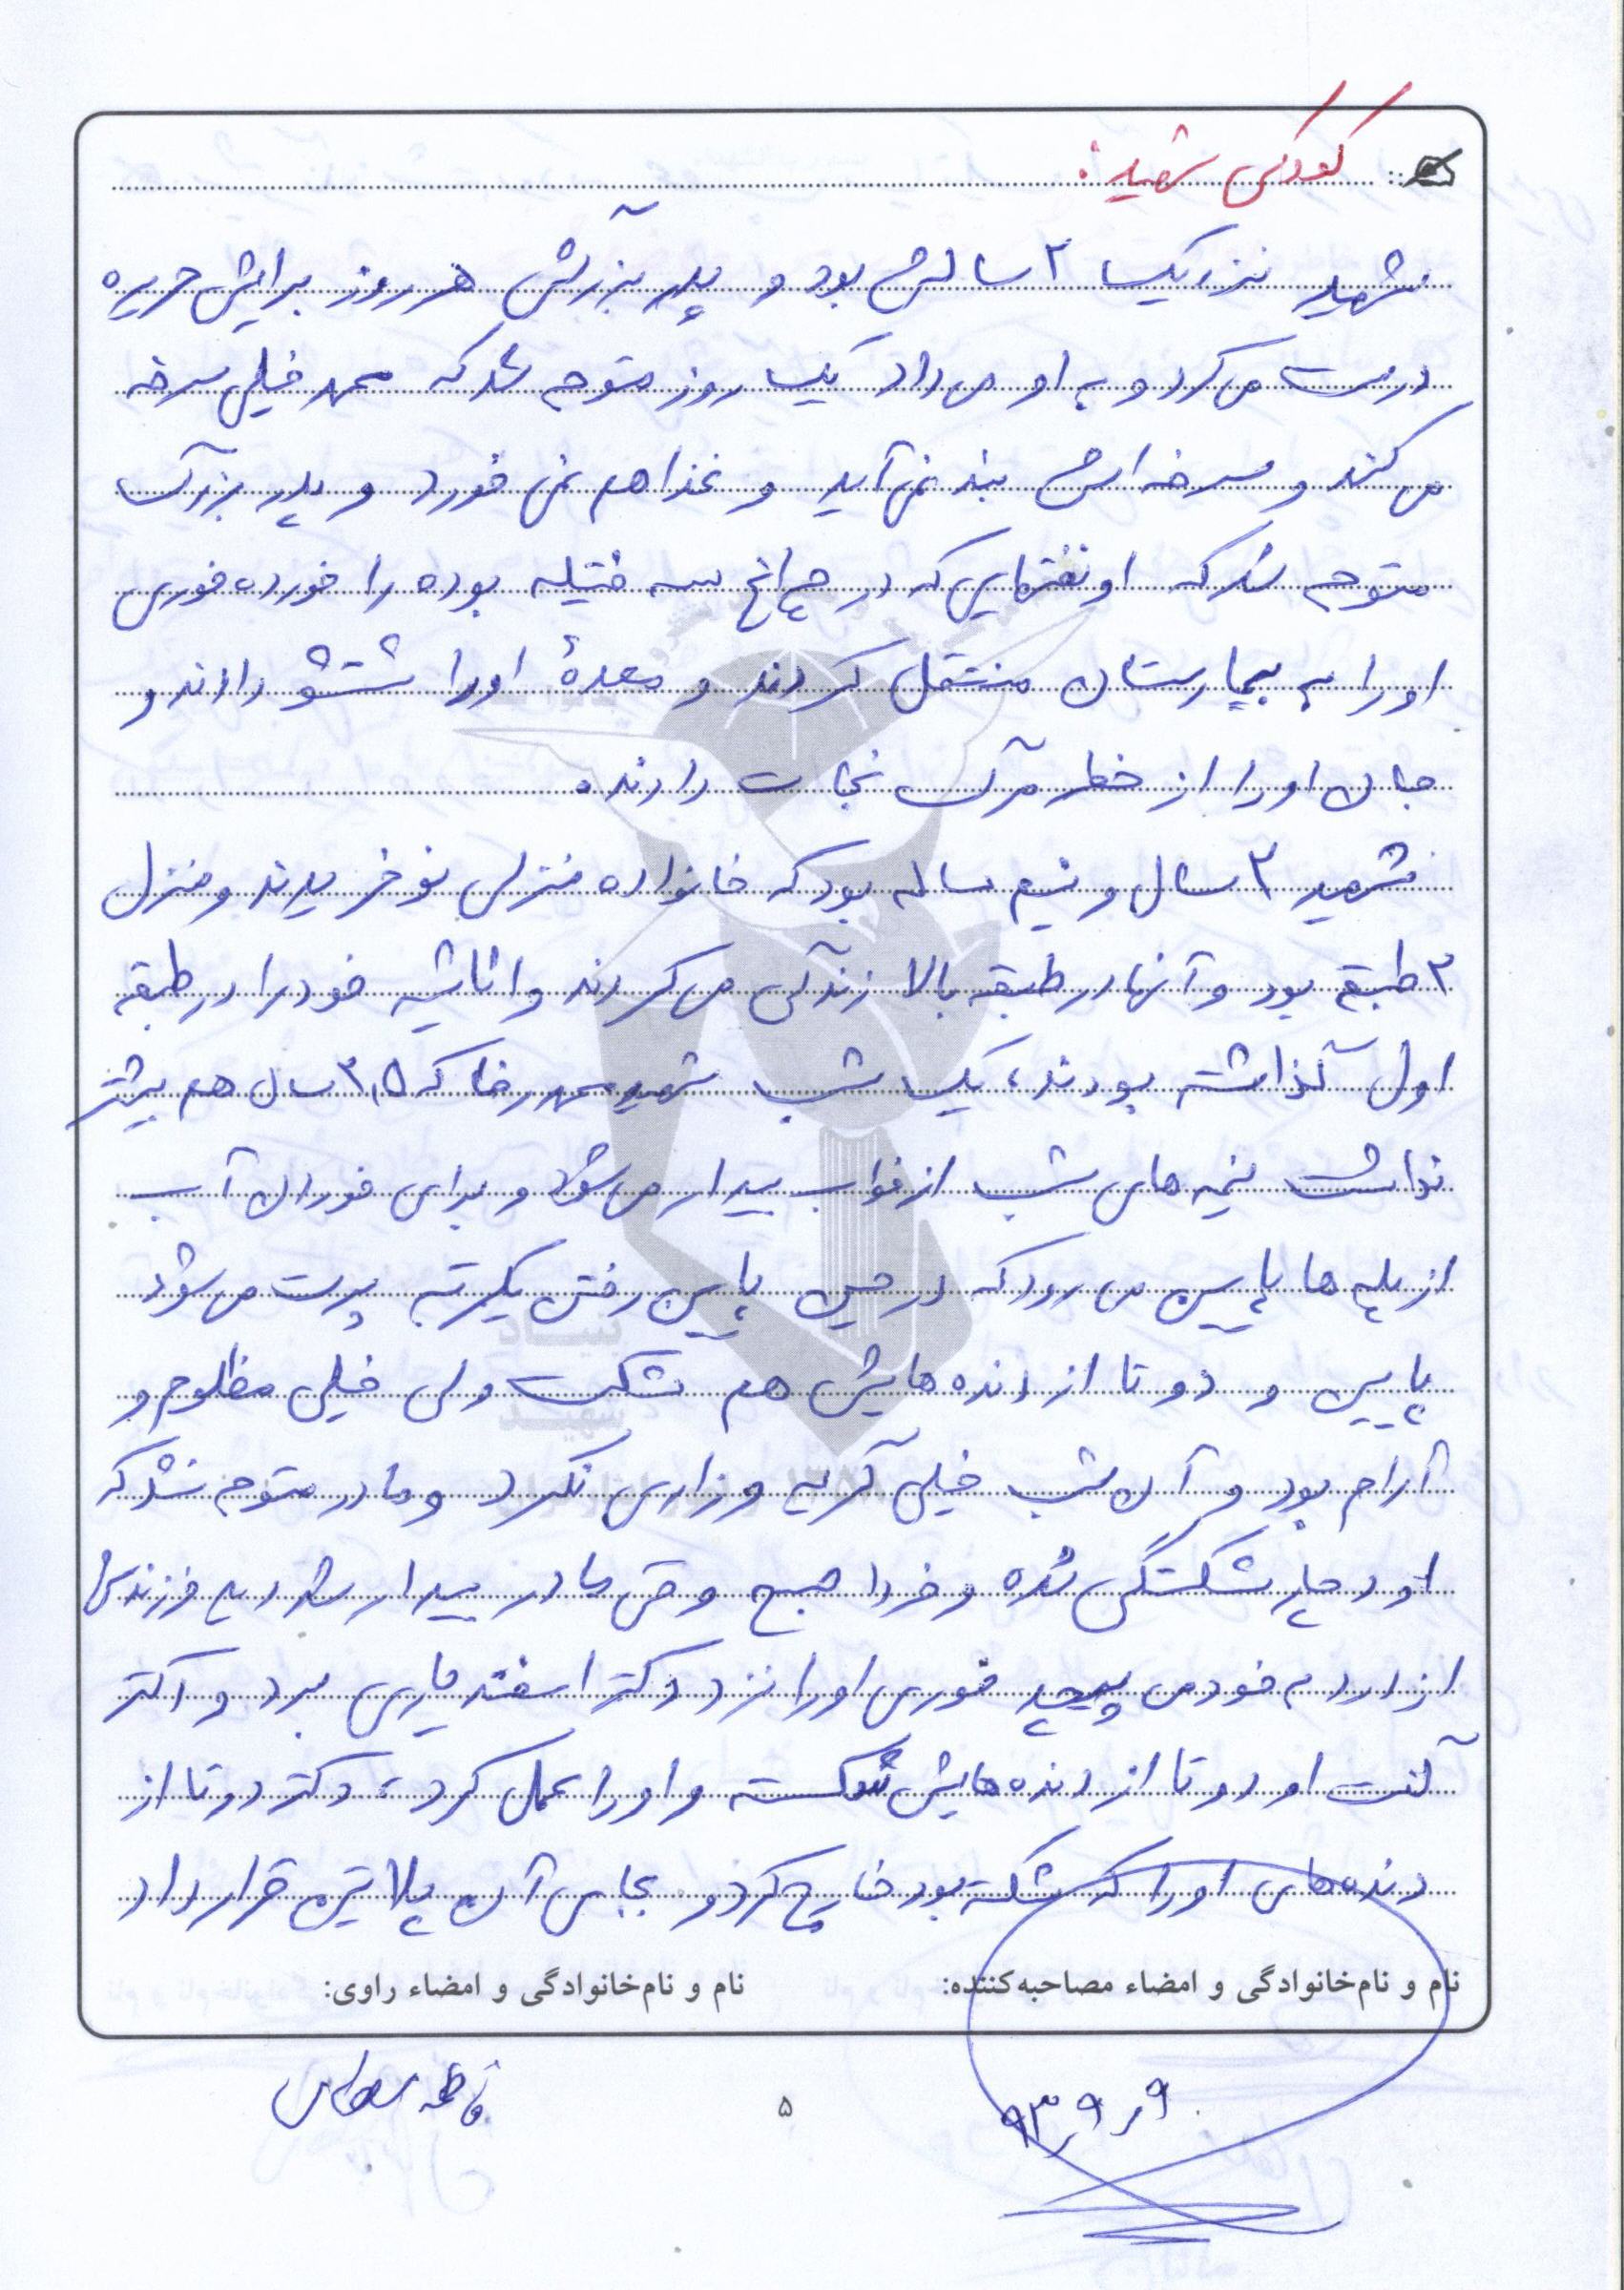 کودکی شهید:
شهید نزدیک ۲ سالش بود و پدر بزرگش هر روز برایش حریره
درست می‌کرد و به او می‌داد یک روز متوجه شد که محمد خیلی سرفه
می‌کند و سرفه‌اش بند نمی‌آید و غذا هم نمی‌خورد و پدر بزرگ
متوجه شد که او نفتهایی که در چراغ سه فتیله بوده را خورده فوری
او را به بیمارستان منتقل کردند و معدهٔ او را شستشو دادند و
جان او را از خطر مرگ نجات دادند.
شهید ۳ سال و نیم ساله بود که خانواده منزلی نو خریدند و منزل
۳ طبقه بود و آنها در طبقه بالا زندگی می‌کردند و اثاثیه خود را در طبقه
اول گذاشته بودند، یک شب شهید محمدرضا که ۳،۵ سال هم بیشتر
نداشت نیمه‌های شب از خواب بیدار می‌شود و برای خوردن آب
از پله‌ها پایین می‌رود که در حین پایین رفتن یکمرتبه پرت می‌شود
پایین و دو تا از دنده‌هایش هم شکست ولی خیلی مظلوم و
آرام بود و آن شب خیلی گریه و زاری نکرد و مادر متوجه نشد که
او دچار شکستگی شده و فردا صبح وقتی مادر بیدار شد دید فرزندش
از درد به خود می‌پیچد فوری او را نزد دکتر اسفندیاری برد و دکتر
گفت او دو تا از دنده‌هایش شکسته و او را عمل کرد، دکتر دو تا از
دنده‌های او را که شکسته بود خارج کرد و بجای آن پلاتین قرار داد
نام و نام‌خانوادگی و امضاء مصاحبه‌کننده:
نام و نام‌خانوادگی و امضاء راوی:
۹ر۹ر۹۳
۵
فاطمه